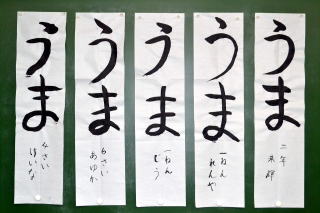 うま
二年
うま
一ねん
れんや
うま
一ねん
うま
6さい
あゆか
うま
4さい
けいな